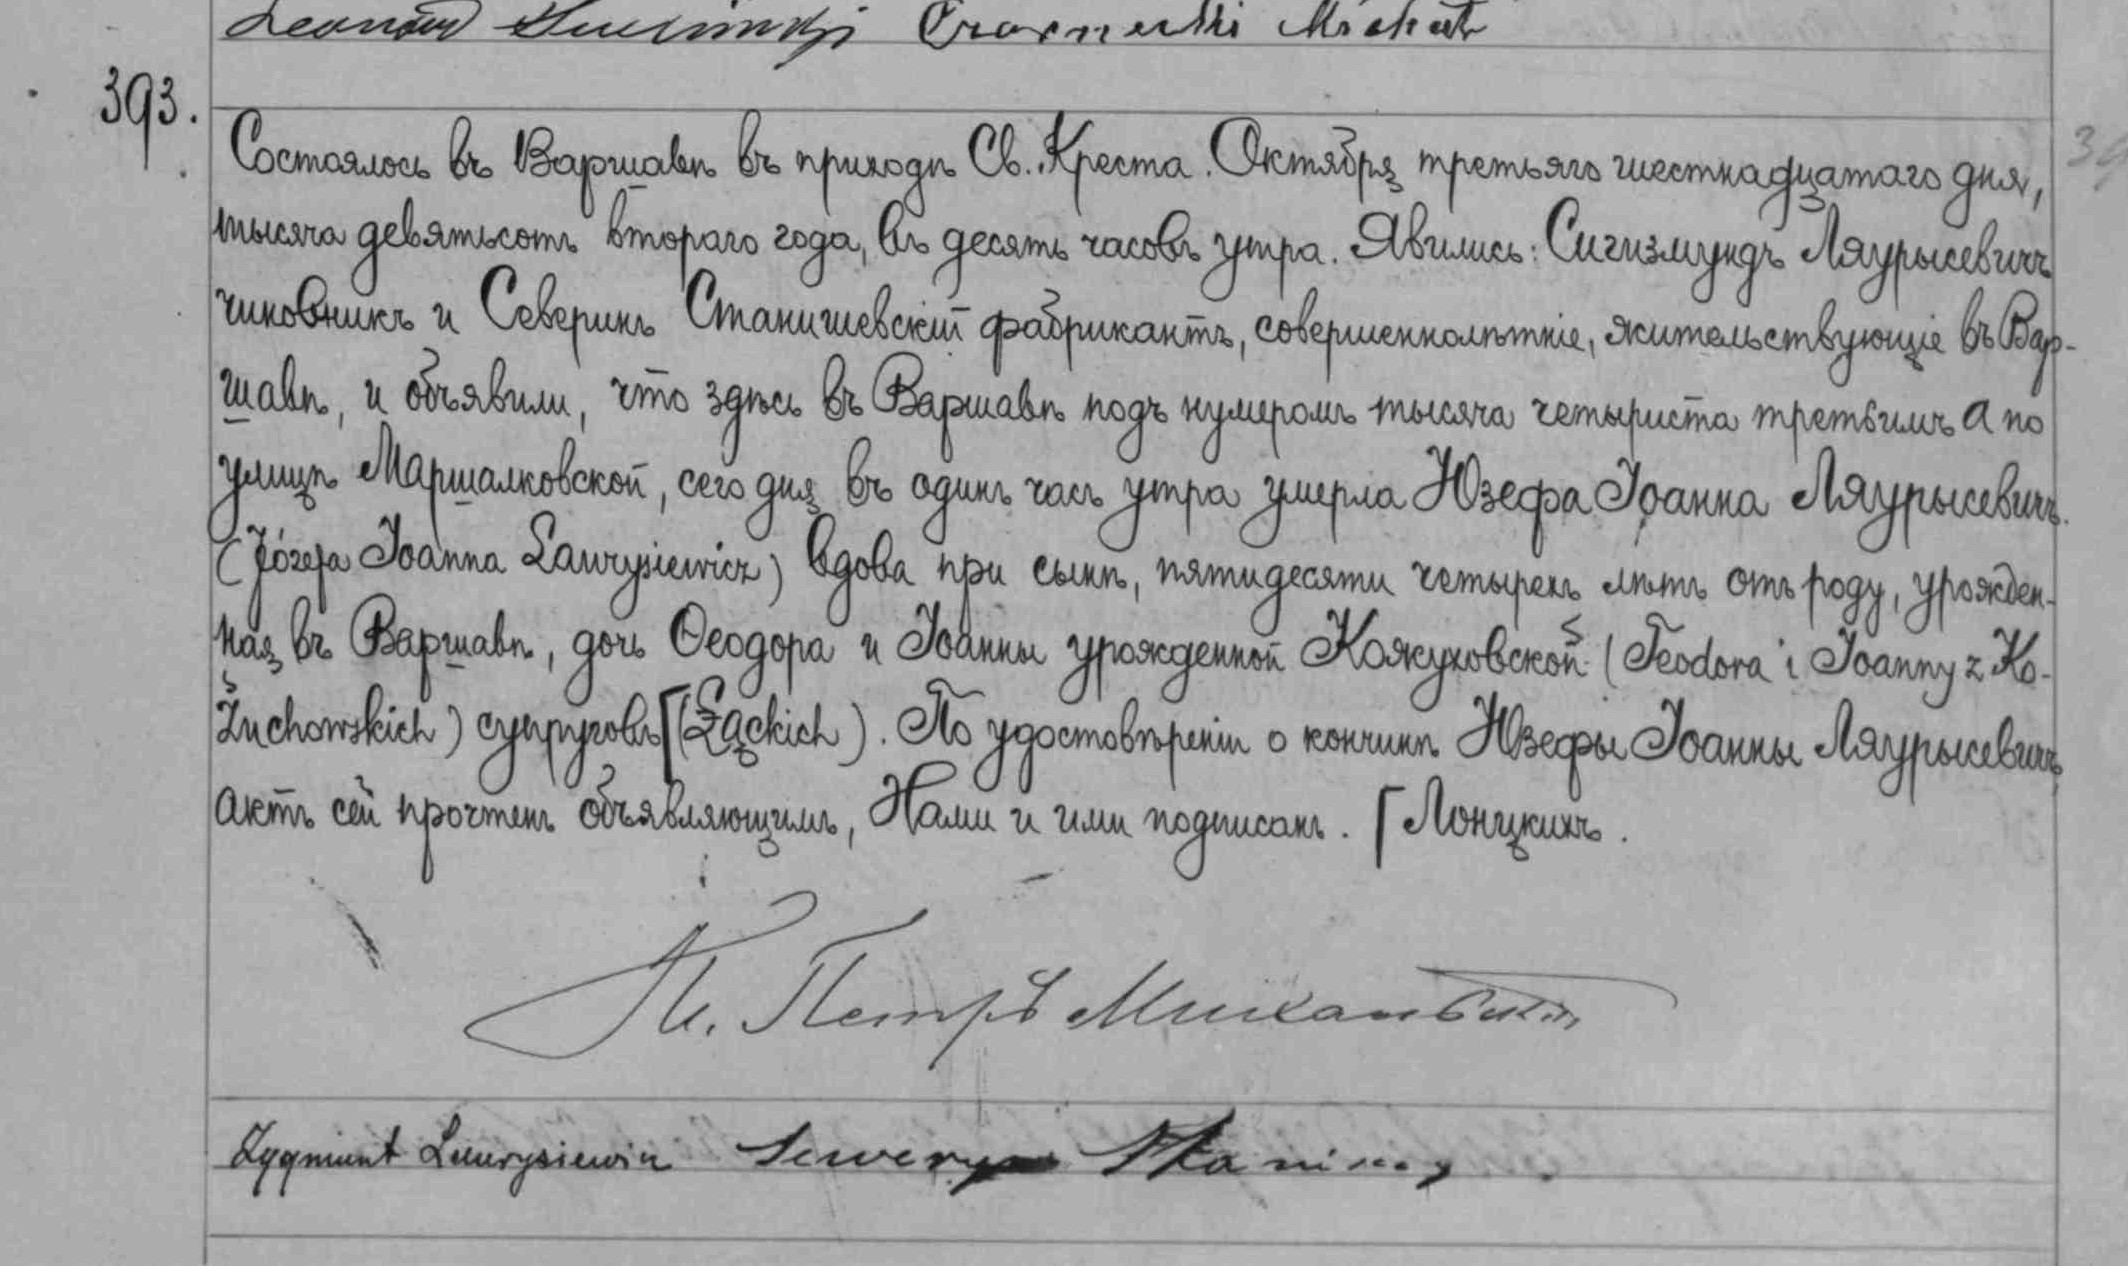 393.
Состоялось въ Варшавѣ въ приходѣ Св. Креста. Октября третьяго шестнадцатаго дня,
тысяча девятьсотъ второго года, въ десять часовъ утра. Явились: Сигизмундъ Ляурысевичъ
чиновникъ и Северинъ Станишевскій фабрикантъ, совершеннолѣтніе, жительствующіе въ Вар-
шавѣ, и объявили, что здѣсь въ Варшавѣ подъ нумеромъ тысяча четыриста третьимъ а по
улицѣ Маршалковской, сего дня въ одинъ часъ утра умерла Юзефа Іоанна Ляурысевичъ.
(Józefa Joanna Laurysiewicz) вдова при сынѣ, пятидесяти четырехъ лѣтъ отъ роду, урожден-
ная въ Варшавѣ, дочь Ѳеодора и Іоанны урожденной Кожуховской (Teodora i Joanny z Ko-
żuchowskich) супруговъ ⌈(Łąckich). По удостовѣреніи о кончинѣ Юзефы Іоанны Ляурысевичъ,
актъ сей прочтенъ объявляющимъ, Нами и ими подписанъ. ⌈Лонцкихъ.
Петръ
Zygmunt Laurysiewicz Seweryn